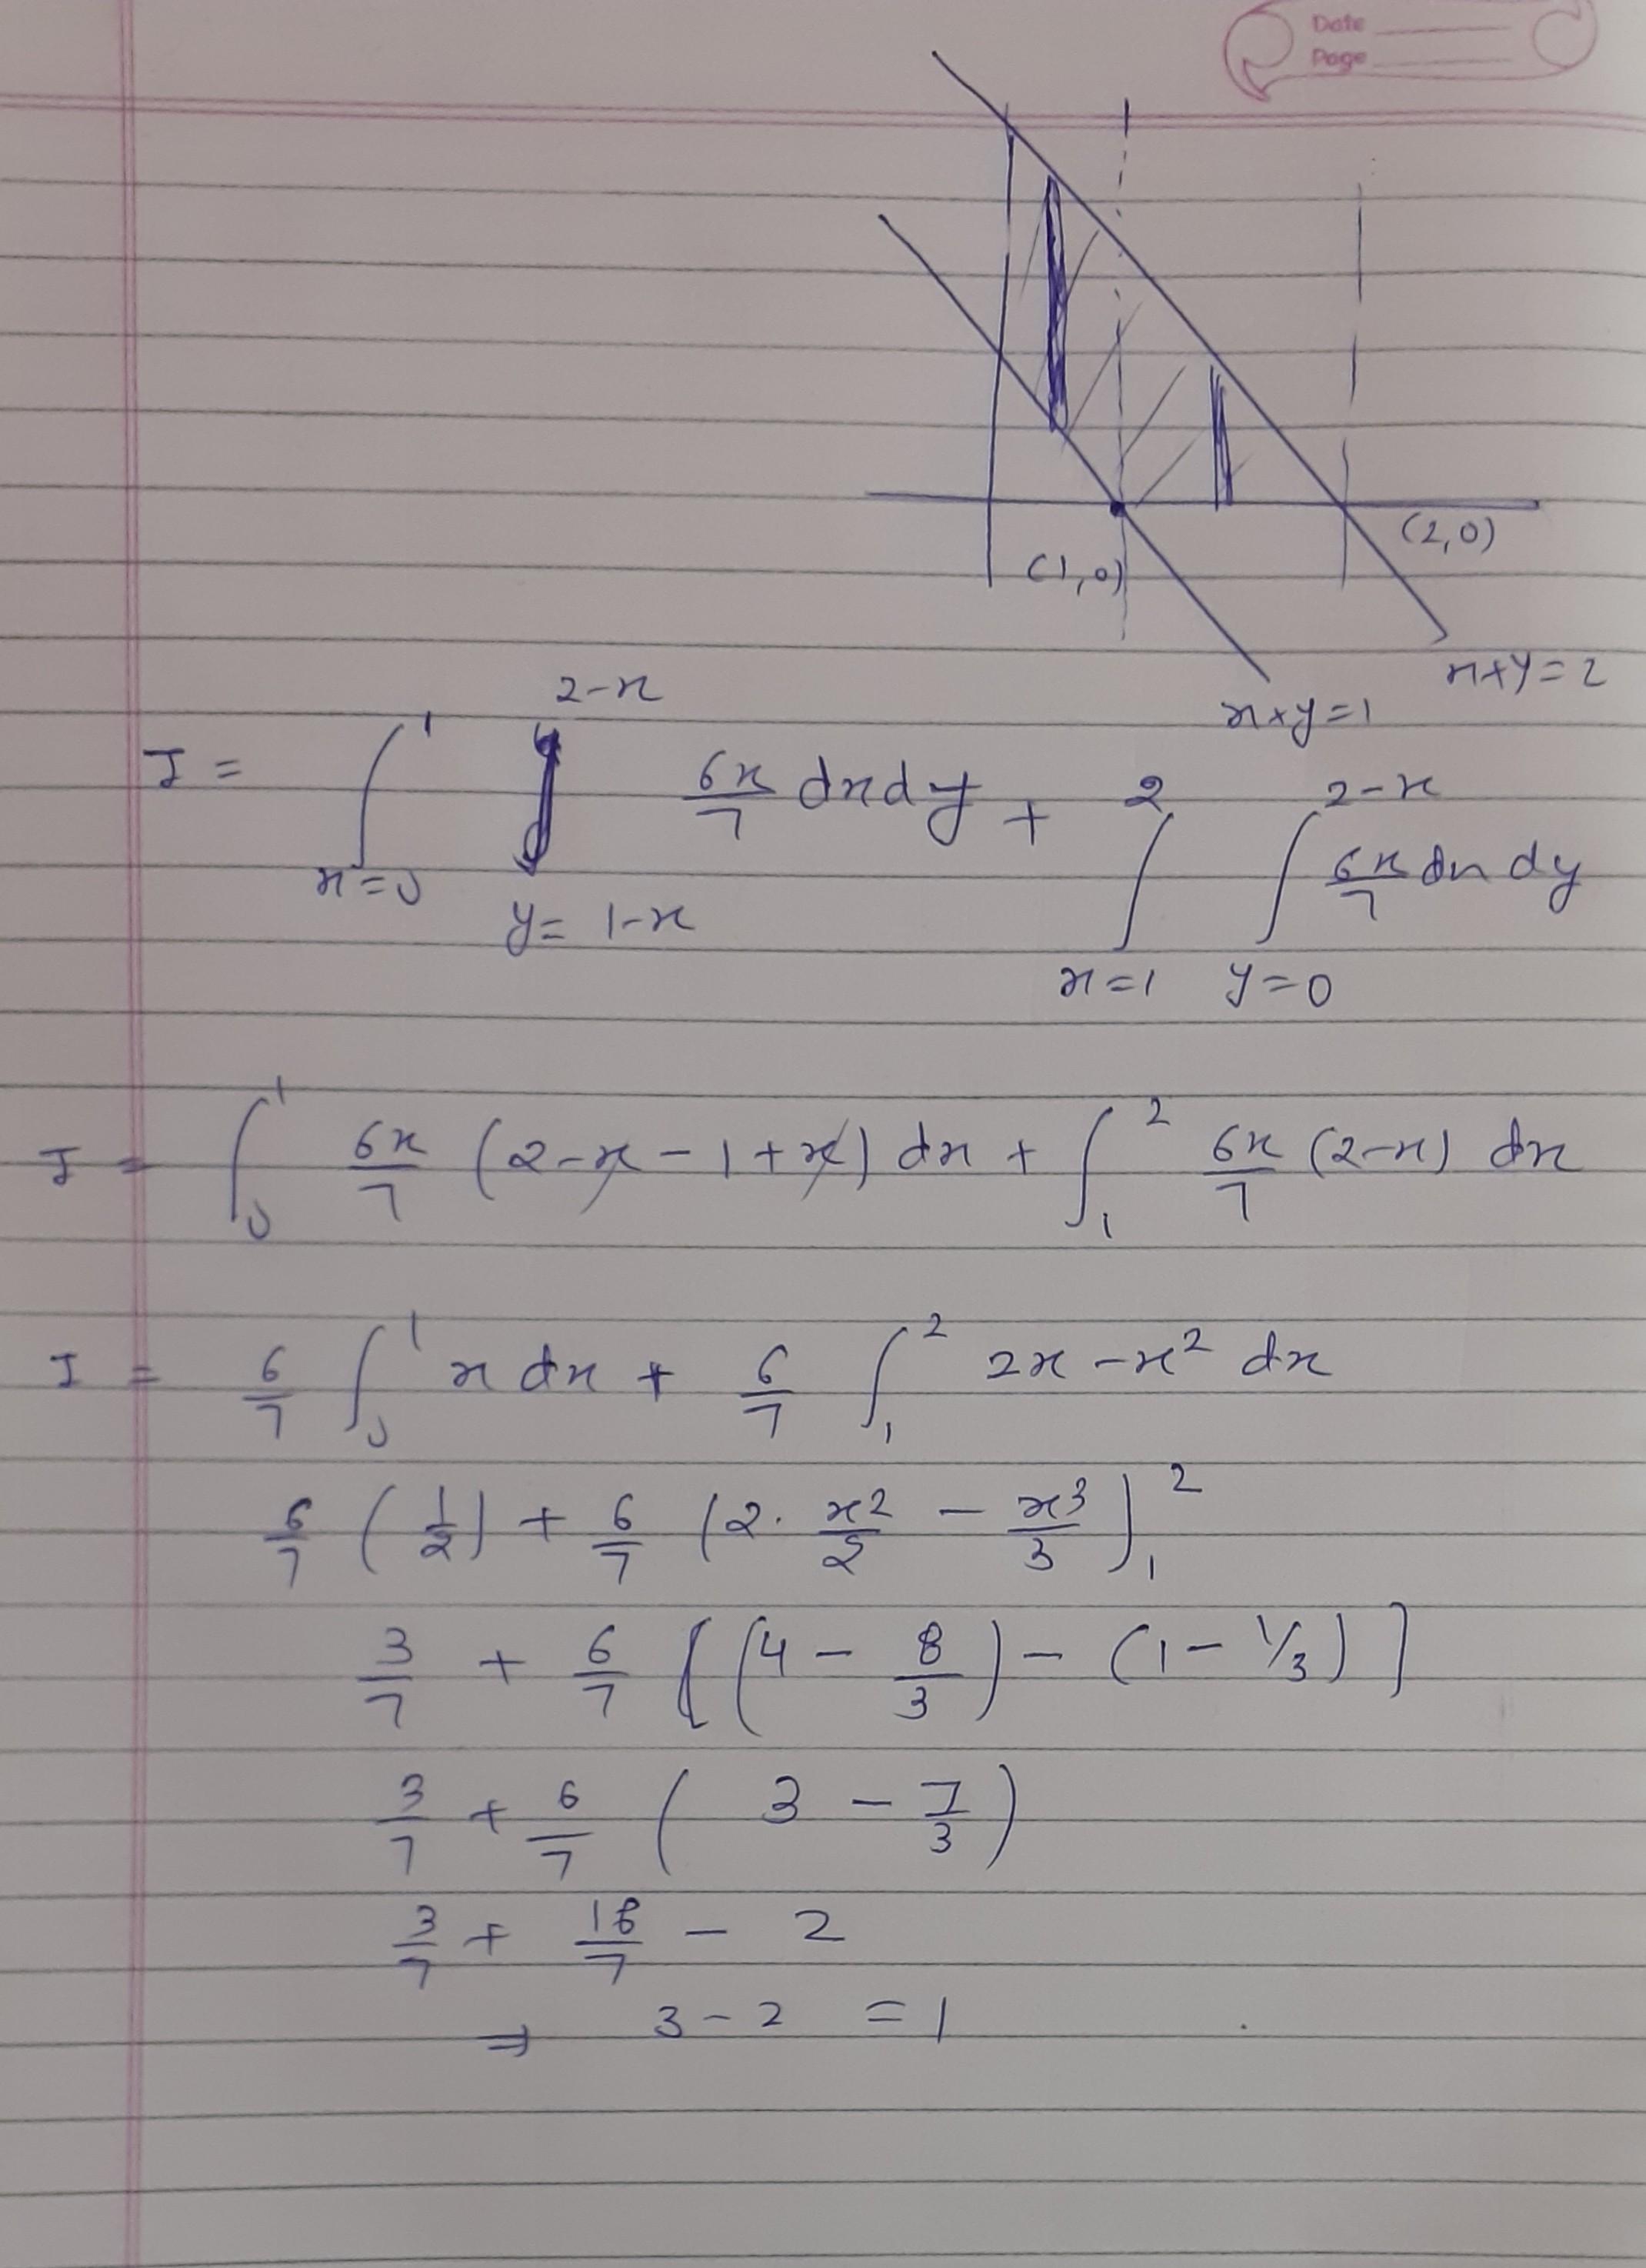 Date
Page
(2,0)
(1,0)
x+y=2
x+y=1
I = ∫_{x=0}^{1} ∫_{y=1-x}^{2-x} 6x/7 dxdy + ∫_{x=1}^{2} ∫_{y=0}^{2-x} 6x/7 dx dy
I = ∫_0^1 6x/7 (2-x-1+x) dx + ∫_1^2 6x/7 (2-x) dx
I = 6/7 ∫_0^1 x dx + 6/7 ∫_1^2 2x-x² dx
6/7 (1/2) + 6/7 (2. x²/2 - x³/3)_1^2
3/7 + 6/7 [(4 - 8/3) - (1 - 1/3)]
3/7 + 6/7 (3 - 7/3)
3/7 + 18/7 - 2
⇒ 3-2 = 1